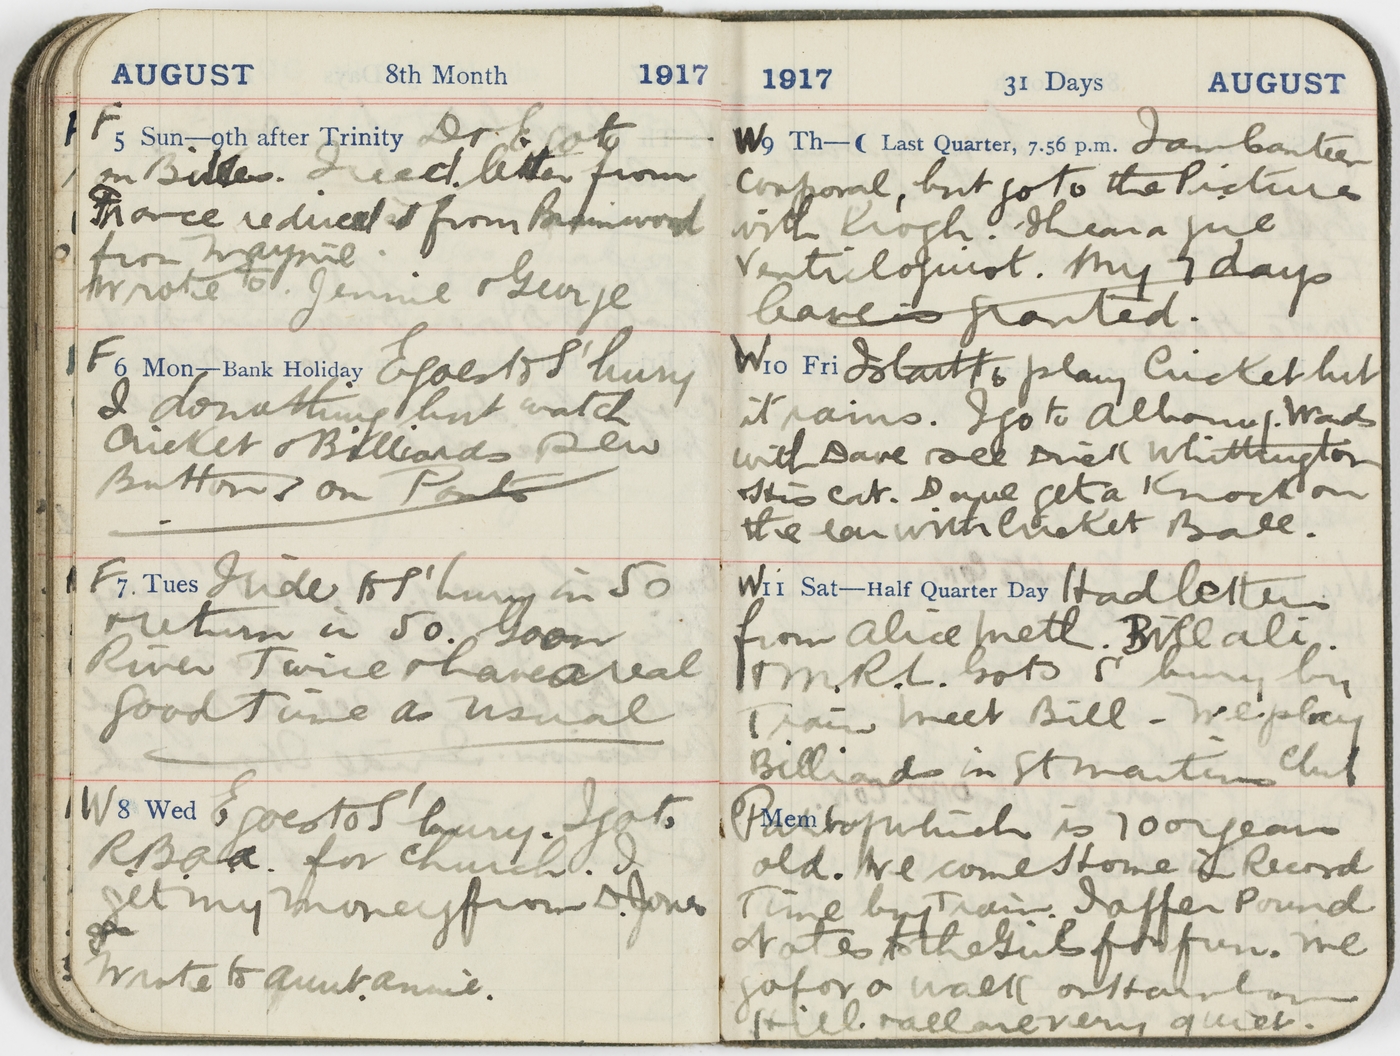 AUGUST 8th Month 1917
F 5 Sun—9th after Trinity Dr. E go to
in Billes. I recd. letter from
France from
from Maynie.
Wrote to. Jennie & George
F 6 Mon—Bank Holiday E goes to S'bury
I do nothing but watch
Cricket & Billiards sew
Buttons on Pants
F 7. Tues I ride to S'bury in 50
& return in 50. Go on
River Twice & have a real
good Time as usual
W 8 Wed E goes to S'bury. I go to
R.B.a.a. for church. I
get my money from D. Jones
Wrote to aunt annie.
1917 31 Days AUGUST
W 9 Th—☾ Last Quarter, 7.56 p.m. I am Canteen
Corporal, but go to the Pictures
with Krogh. I hear a
ventriloquist. My 7 days
leave is granted.
W 10 Fri I start to play Cricket but
it rains. I go to Albany. Wards
with Dave & see Dick Whittington
& His cat. Dave get a Knock on
the ear with Cricket Ball.
W 11 Sat—Half Quarter Day Had letters
from Alice Meth. Bill ali.
& M.R.L. Go to S'bury by
Train meet Bill - We play
Billiards in St Martins Club
Mem Part of which is 700 years
old. We come Home in Record
Time by Train. I offer Pound
Notes to the Girls for fun. We
go for a walk on Harnham
Hill. & all are very quiet.